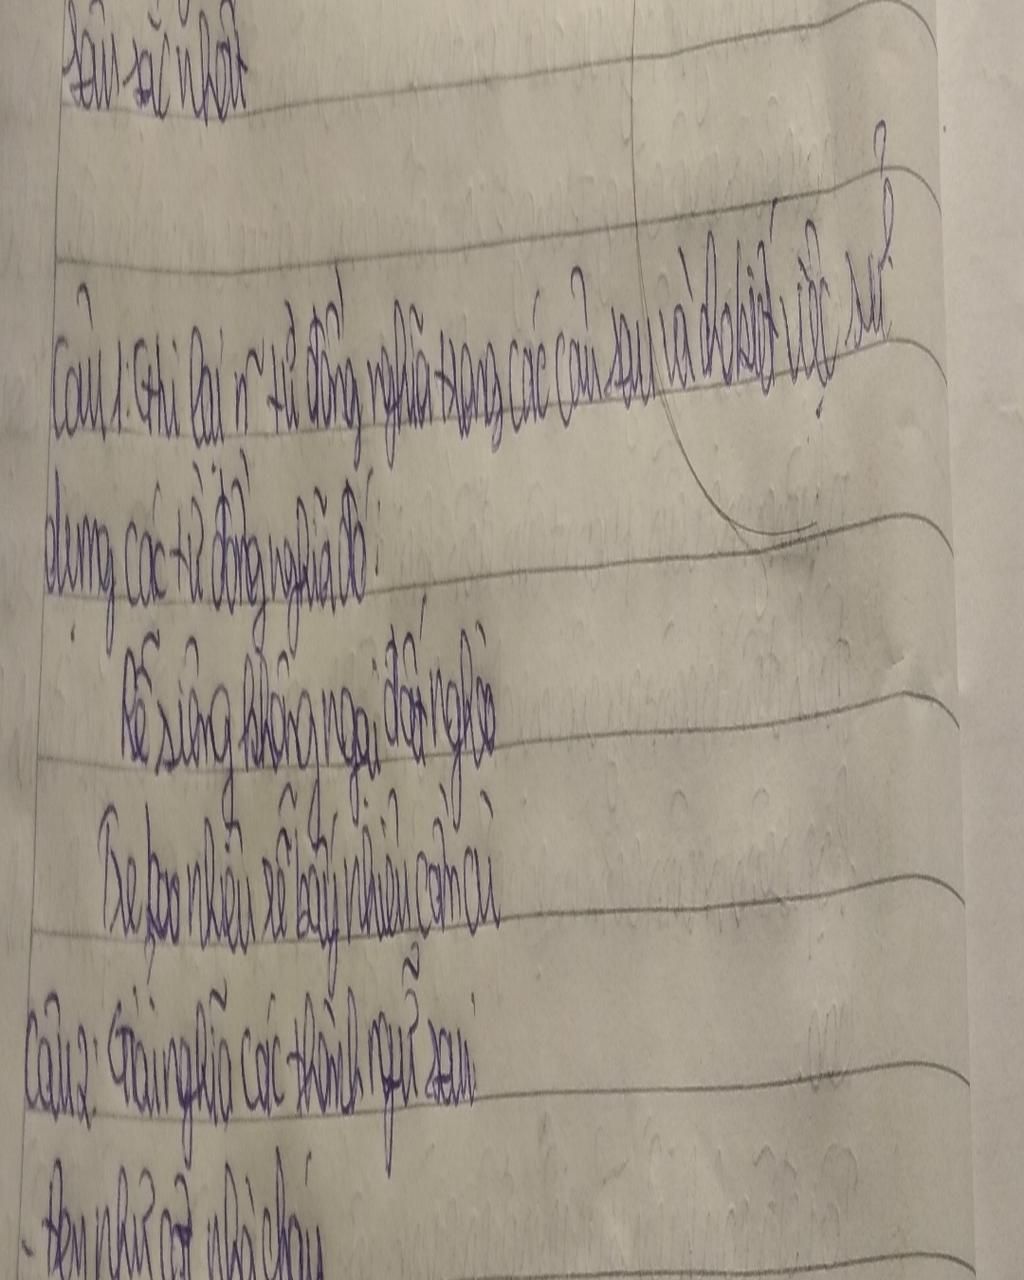 sâu sắc nhất
Câu 1: Ghi lại n~ từ đồng nghĩa trong các câu sau và cho biết việc sử
dụng các từ đồng nghĩa đó:
Rễ siêng không ngại đất nghèo
Tre bao nhiêu rễ bấy nhiêu cần cù
Câu 2: Giải nghĩa các thành ngữ sau
- đen như cột nhà cháy